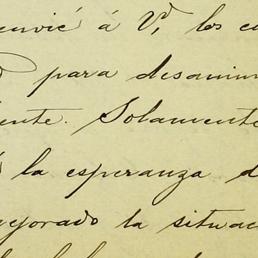 envié á Vd, los
para desanim
ente. Solamente
la esperanza d
ejorado la situac